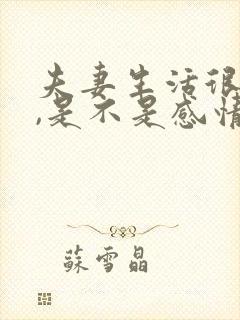 夫妻生活很
,是不是感情
蘇雪晶